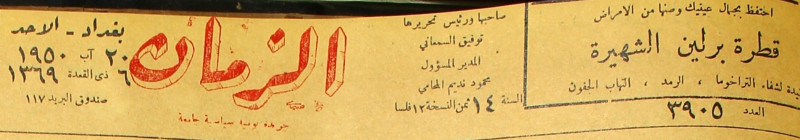 احتفظ بجمال عينيك وصنها من الامراض
قطرة برلين الشهيرة
لشفاء التراخوما ، الرمد ، التهاب الجفون
العدد ٣٩٠٥
صاحبها ورئيس تحريرها
توفيق السمعاني
المدير المسؤول
محمود نديم المحامي
السنة ١٤ ثمن النسخة ١٢ فلسا
الزمان
جريدة يومية سياسية جامعة
بغداد - الاحد
٢٠ آب ١٩٥٠
٦ ذي القعدة ١٣٦٩
صندوق البريد ١١٧